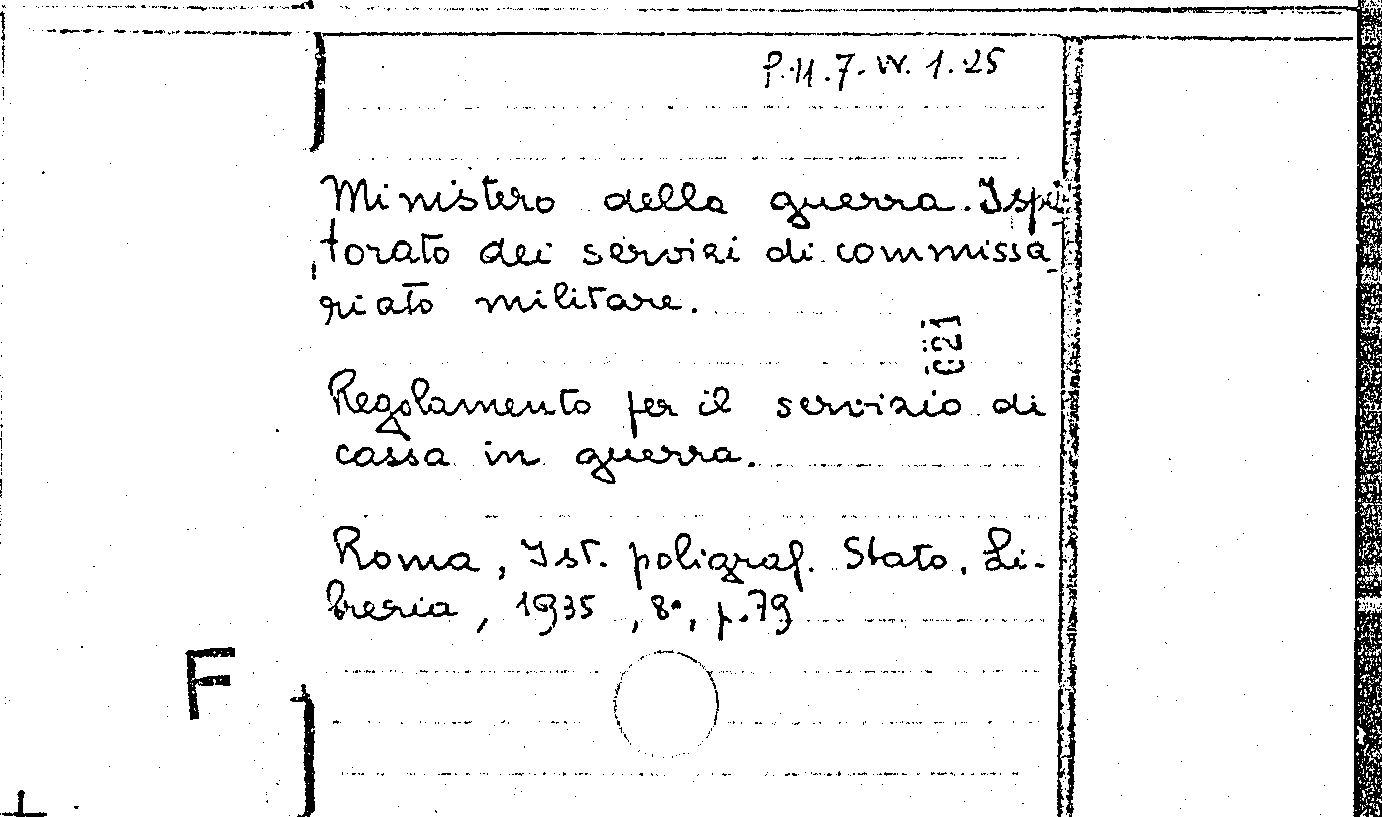 P.11.7.VV.1.25
Ministero della guerra. Ispet
torato dei servizi di commissa_
riato militare.
C21
Regolamento per il servizio di
cassa in guerra.
Roma, Ist. poligraf. Stato. Li-
breria, 1935, 8°, p.79
F